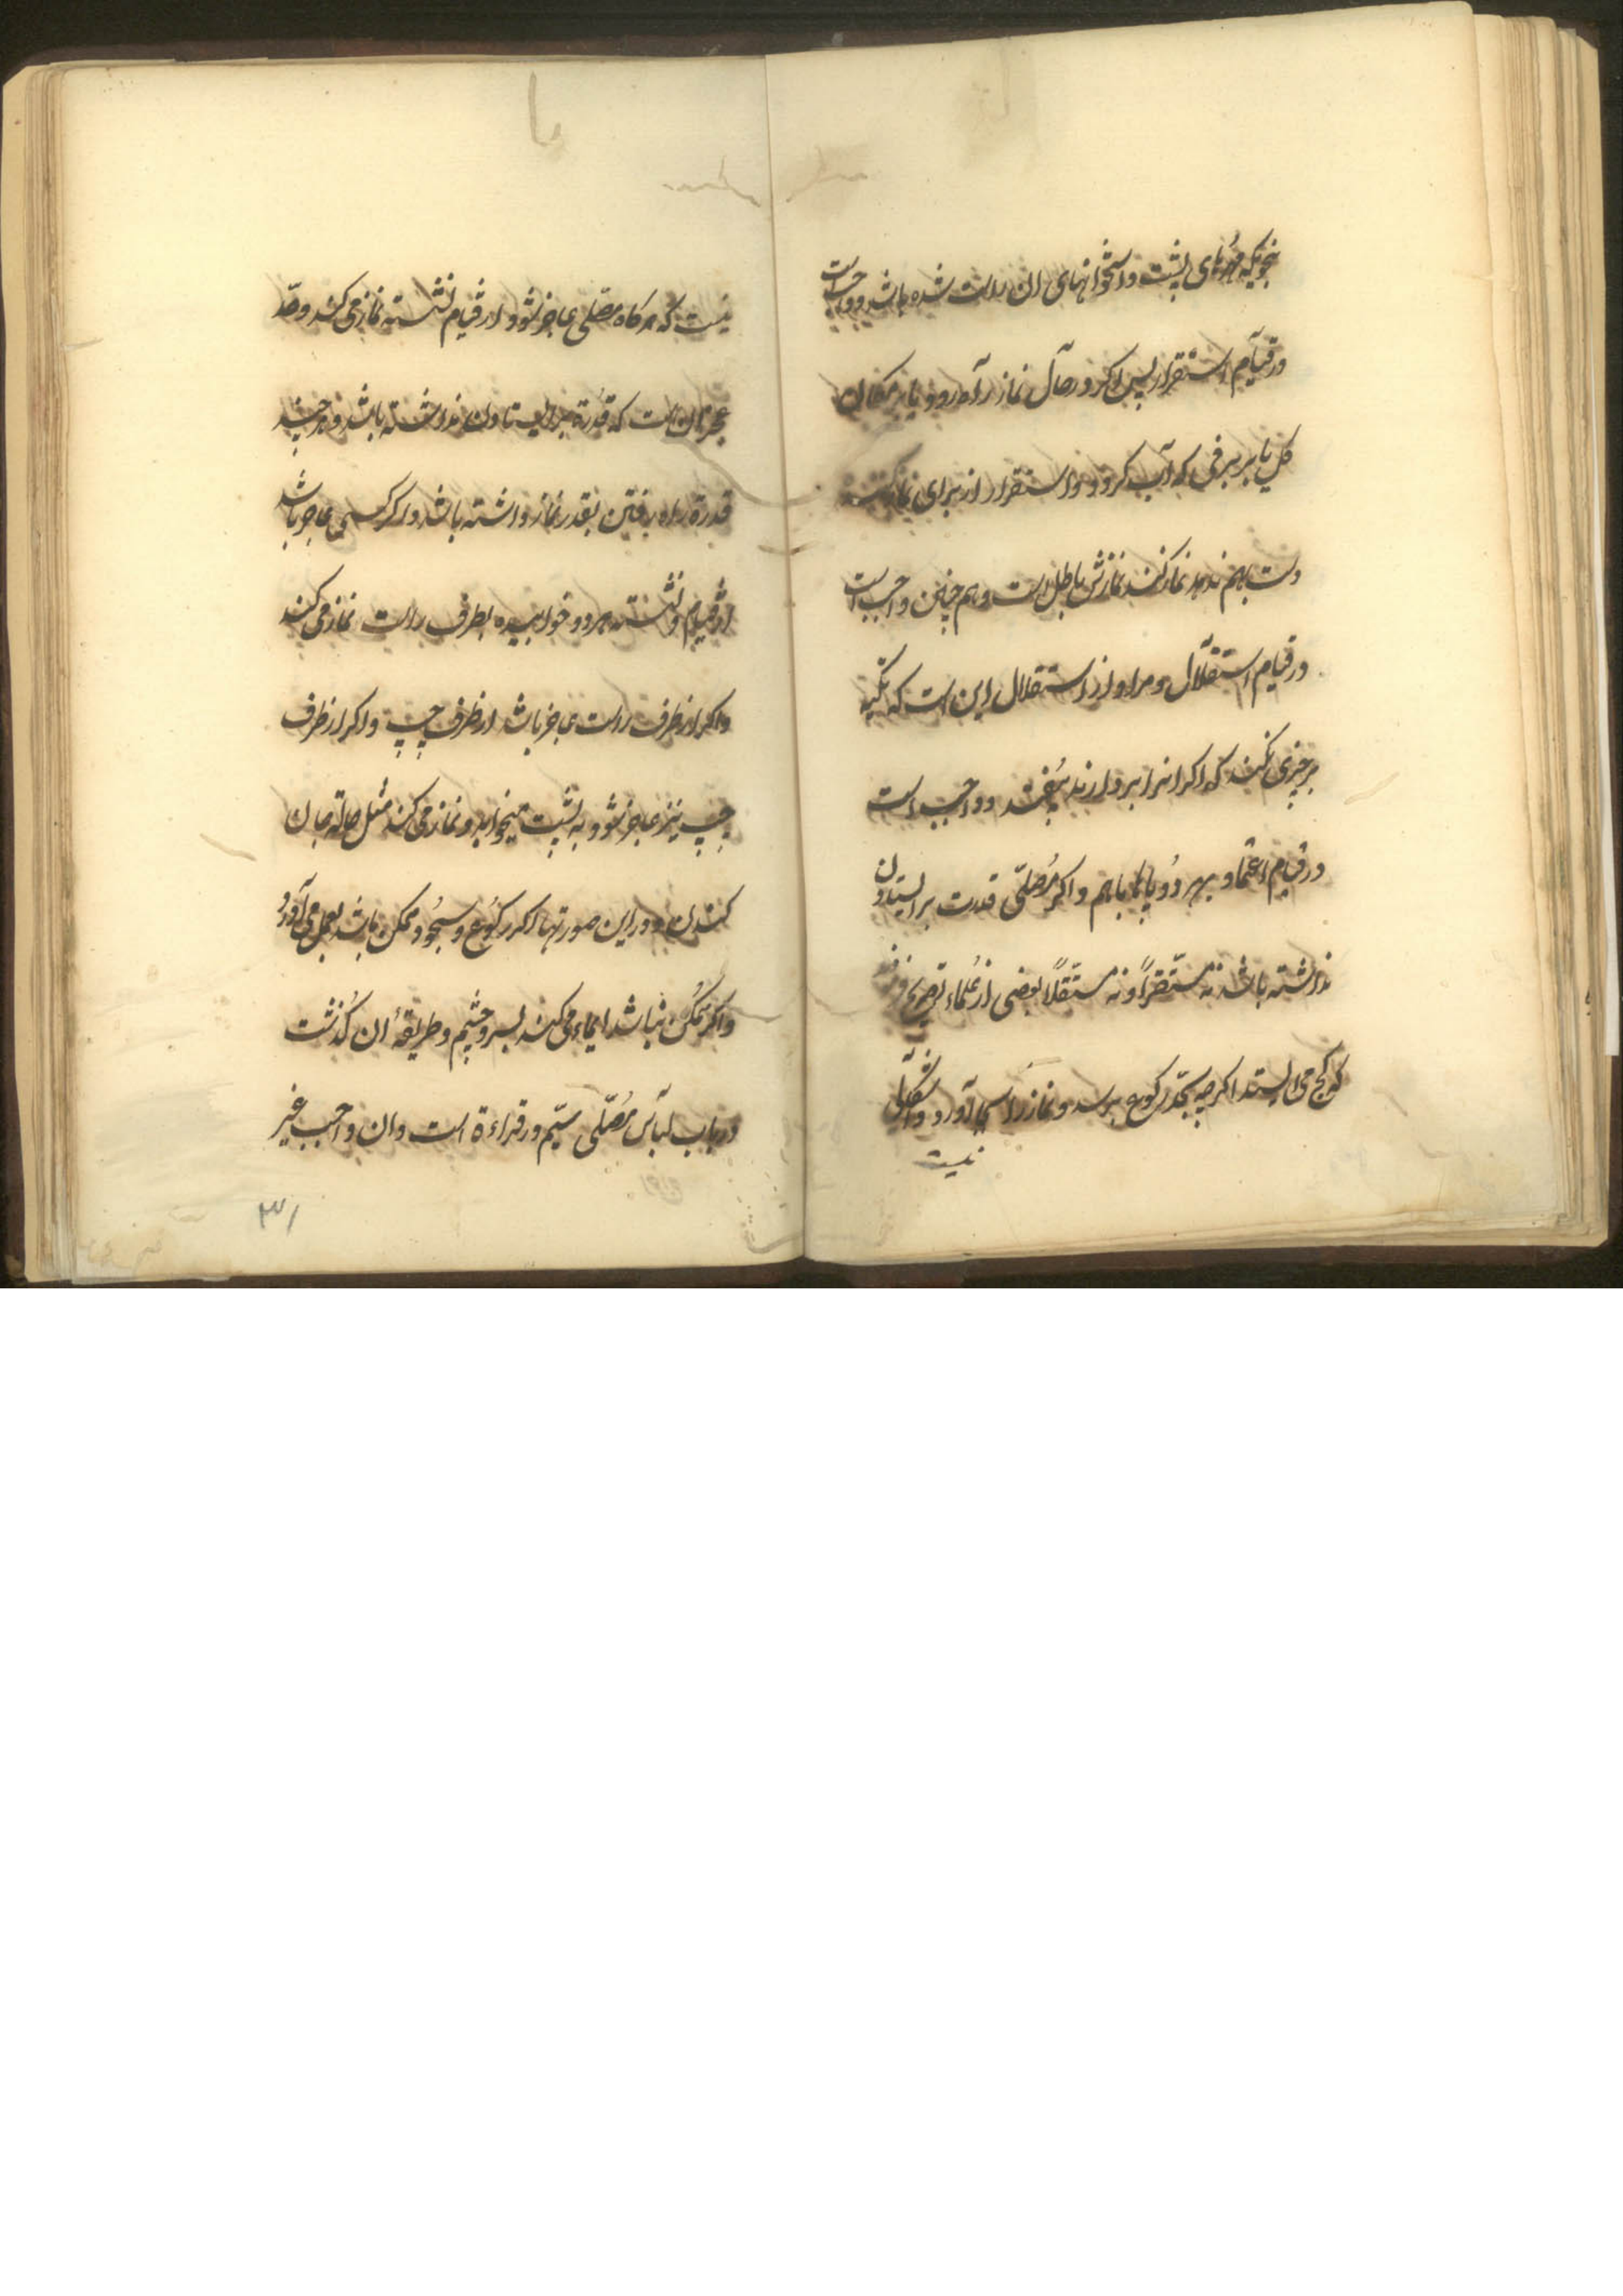 بنحویکه مهرهای پشت واستخوانهای ان راست شده باشد و واجب است
در قیام استقرار پس اکر در حال نماز راه رود یا بر مکان
کل یا بر برفی که آب کردد واستقرار از برای نماز کننده
دست بهم ندهد نماز کند نمازش باطل است و هم چنین واجب است
در قیام استقلال و مراد از استقلال این است که تکیه
بر چیزی نکند که اکر انرا بردارند بیفتد و واجب است
در قیام اعتماد بهر دو پاها باهم و اکر مصلّی قدرت بر ایستادن
نداشته باشد نه مستقراً و نه مستقلاً بعضی از علماء تصریح فرموده
که کج می ایستد اکرچه بحدّ رکوع برسد و نماز را بجا آورد و اشکالی
نیست
نیست که هرکاه مصلّی عاجز شود از قیام نشسته نماز می کند و حدّ
عجز ان است که قدرة بر ایستادن نداشته باشد و هر چند
قدرة راه رفتن بقدر نماز داشته باشد و اکر کسی عاجز باشد
از قیام و نشسته هر دو خوابیده بطرف راست نماز می کند
و اکر از طرف راست عاجز باشد از طرف چپ و اکر از طرف
چپ نیز عاجز شود به پشت میخوابد و نماز می کند مثل حالة جان
کندن و در این صورتها اکر رکوع و سجود ممکن باشد بعمل می آورد
و اکر ممکن نباشد ایماء می کند بسر و چشم و طریقهٔ ان کذشت
در باب لباس مصلّی سیّم در قراءة است و ان واجب غیر
۳۱